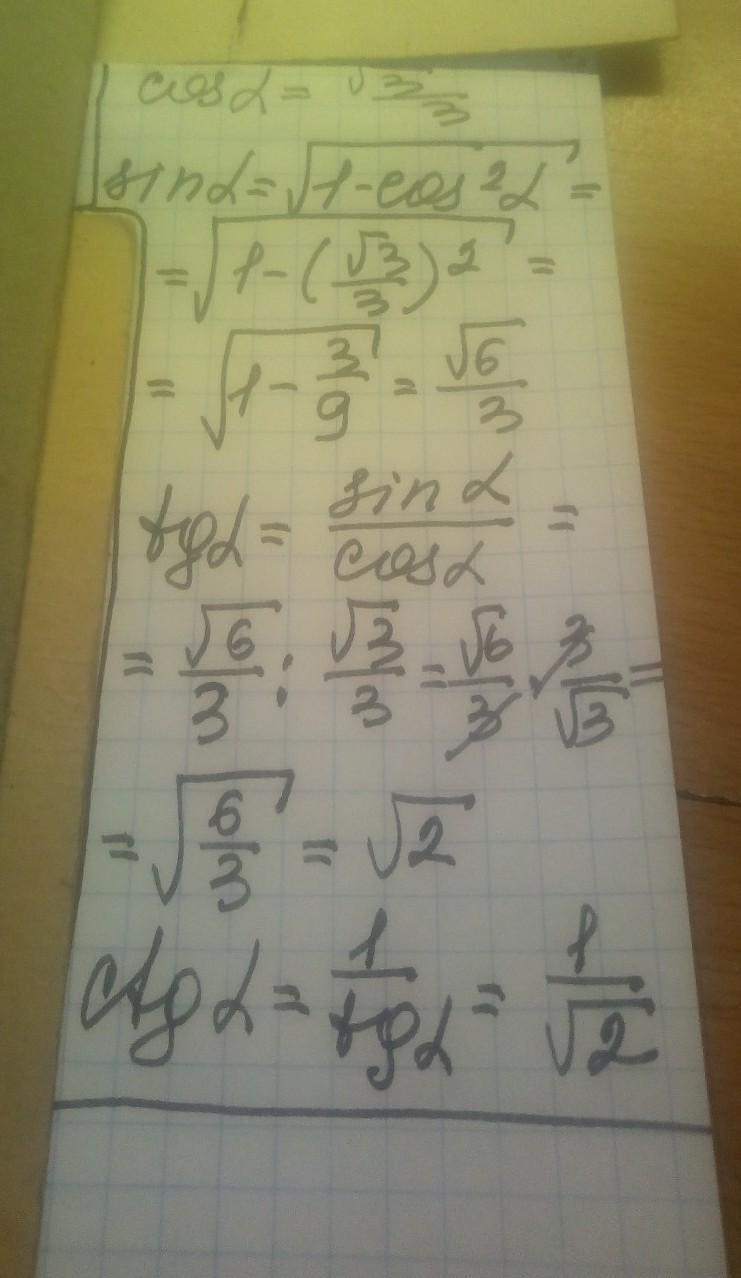 cosα = √3/3
sinα = √(1-cos²α) =
= √(1-(√3/3)²) =
= √(1-3/9) = √6/3
tgα = sinα/cosα =
= √6/3 : √3/3 = √6/3 · 3/√3 =
= √(6/3) = √2
ctgα = 1/tgα = 1/√2